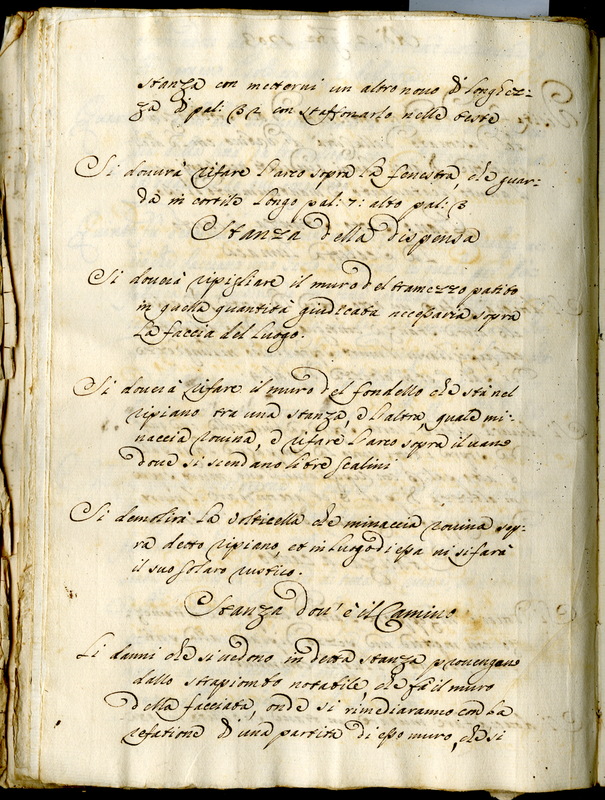 stanza con metterni un altro novo di longhez-
za di pal: 32 con staffonarlo nelle teste
Si douerà rifare l'arco sopra la fenestra, che guar-
da in cortile longo pal: 7: alto pal: 3
Stanza della dispensa
Si douerà ripigliare il muro del tramezzo patito
in quella quantità giudicata necessaria sopra
la faccia del luogo.
Si douerà rifare il muro del fondello che stà nel
ripiano tra una stanza, e l'altra, quale mi-
naccia rouina, e rifare l'arco sopra il uano
doue si scendano li tre scalini
Si demolirà la volticella che minaccia rouina sop-
ra detto ripiano, et in luogo di essa ui si farà
il suo solaro rustico.
Stanza dou' è il Camino
Li danni che si uedono in detta stanza prouengano
dallo strapiombo notabile, che fà il muro
della facciata, onde si rimediaranno con la
refatione di una partita di esso muro, che si